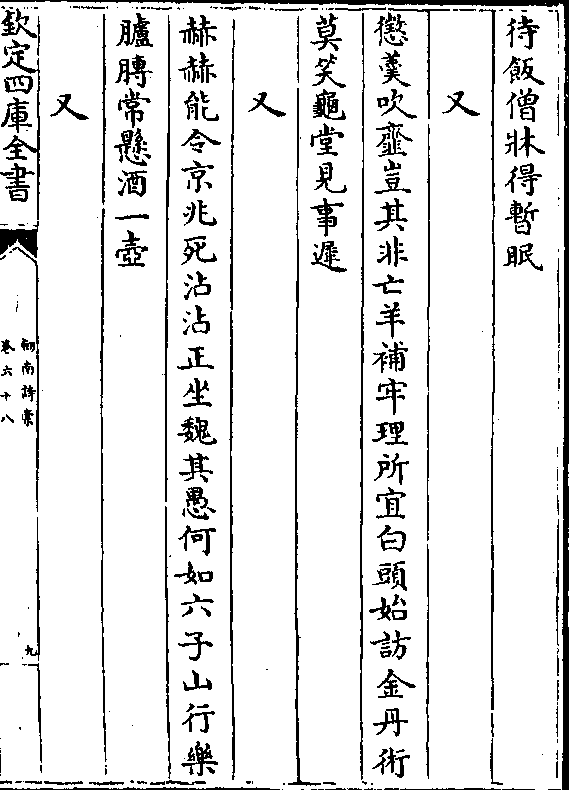 待飯僧牀得暫眠
又
懲羹吹虀豈其非亡羊補牢理所宜白頭始訪金丹術
莫笑龜堂見事遲
又
赫赫能令京兆死沾沾正坐魏其愚何如六子山行樂
臚膊常懸酒一壺
又
欽定四庫全書
劒南詩稾
卷六十八
九